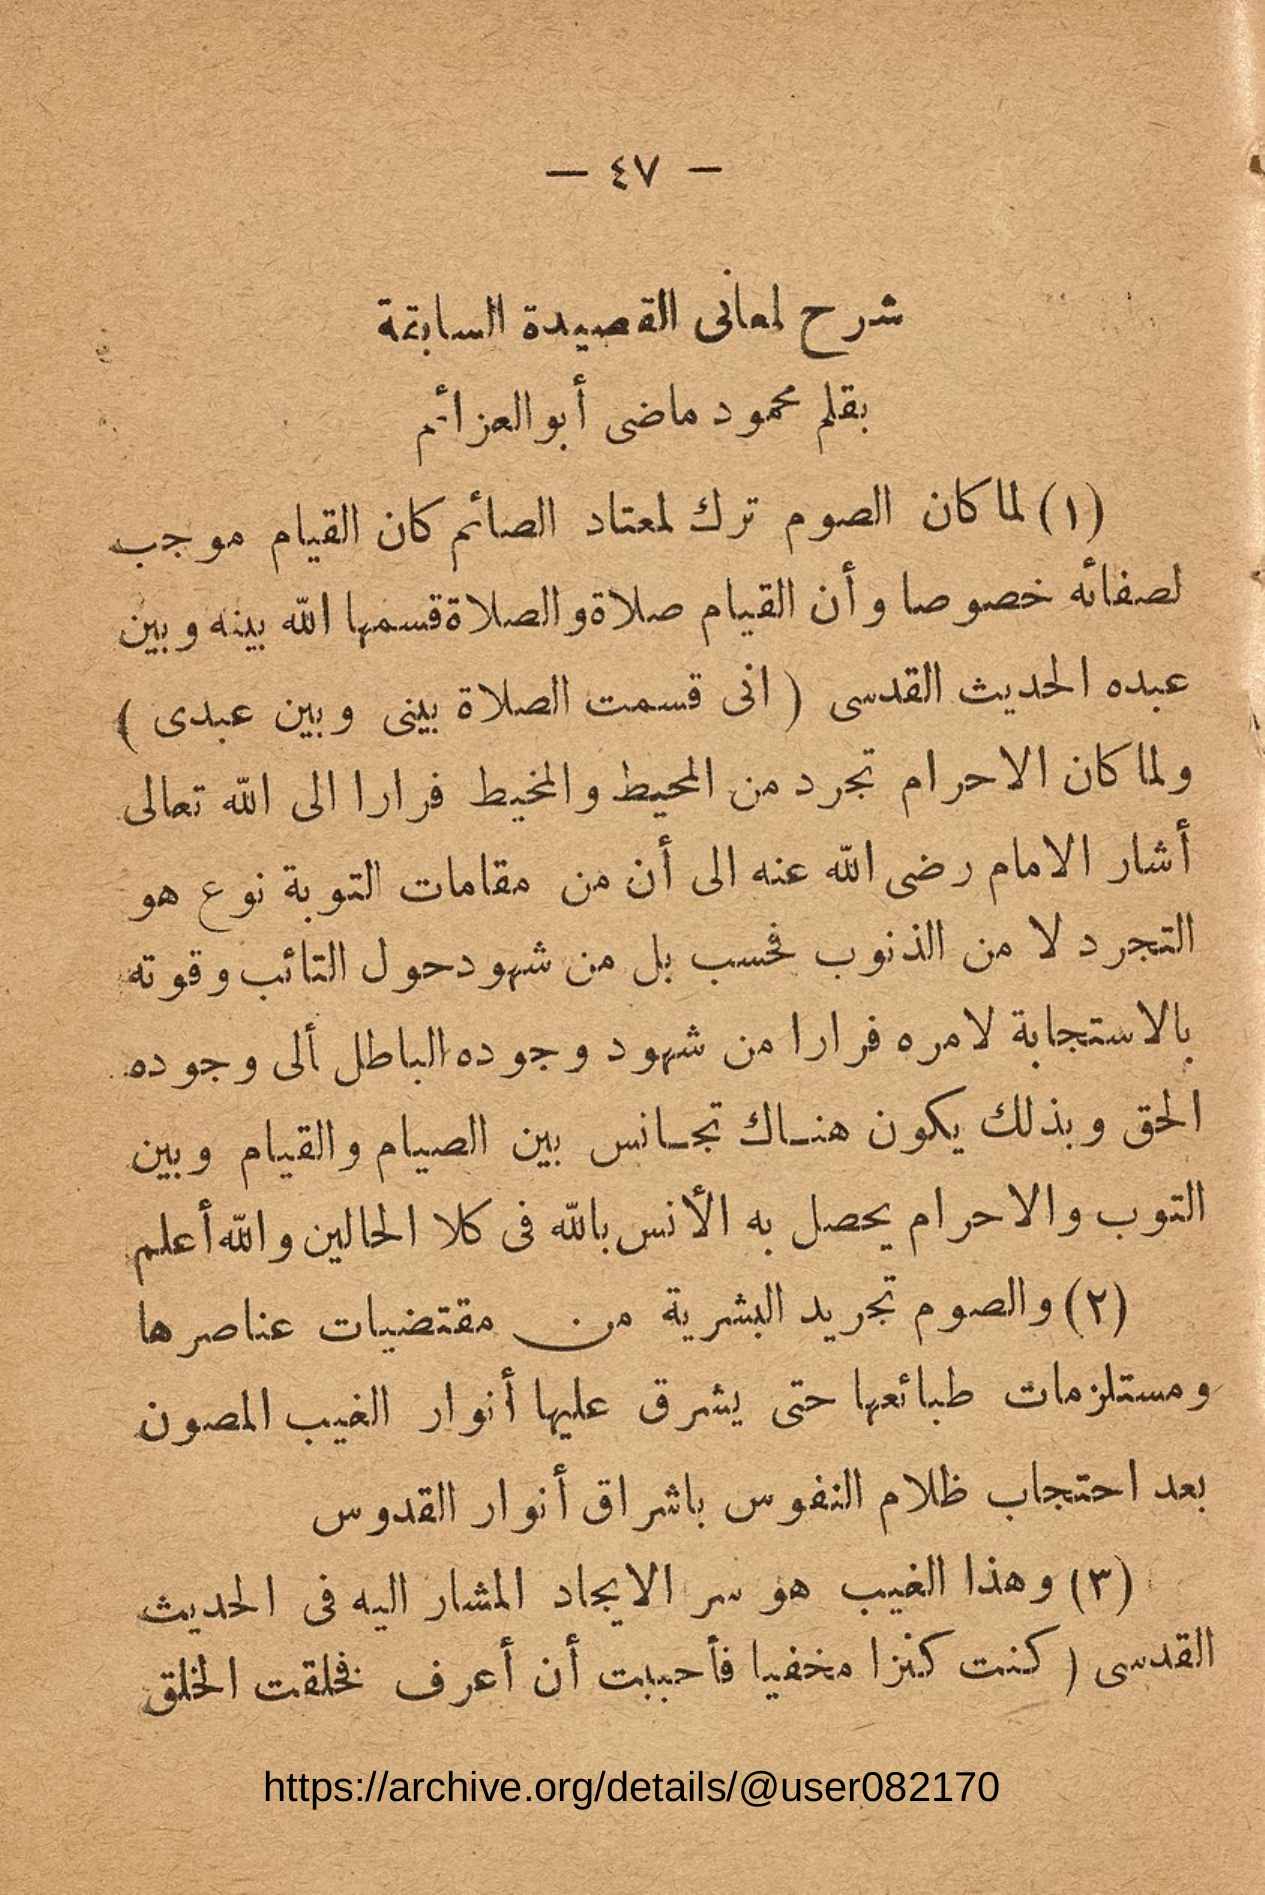 — ٤٧ —
شرح لمعانى القصيدة السابقة
بقلم محمود ماضى أبو العزائم
(١) لما كان الصوم ترك لمعتاد الصائم كان القيام موجب
لصفائه خصوصا وأن القيام صلاة والصلاة قسمها الله بينه وبين
عبده الحديث القدسى ( انى قسمت الصلاة بينى وبين عبدى )
ولما كان الاحرام تجرد من المحيط والمخيط فرارا الى الله تعالى
أشار الامام رضى الله عنه الى أن من مقامات التوبة نوع هو
التجرد لا من الذنوب فحسب بل من شهود حول التائب وقوته
بالاستجابة لامره فرارا من شهود وجوده الباطل ألى وجوده
الحق وبذلك يكون هنـاك تجـانس بين الصيام والقيام وبين
التوب والاحرام يحصل به الأنس بالله فى كلا الحالين والله أعلم
(٢) والصوم تجريد البشرية من مقتضيات عناصرها
ومستلزمات طبائعها حتى يشرق عليها أنوار الغيب المصون
بعد احتجاب ظلام النفوس باشراق أنوار القدوس
(٣) وهذا الغيب هو سر الايجاد المشار اليه فى الحديث
القدسى ( كنت كنزا مخفيا فأحببت أن أعرف فخلقت الخلق
https://archive.org/details/@user082170